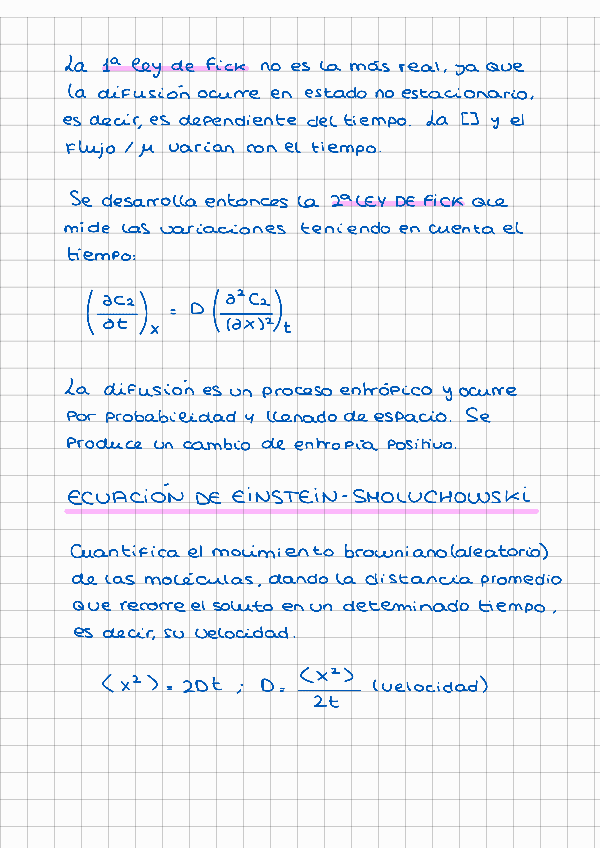 La 1ª ley de Fick no es la más real, ya que
la difusión ocurre en estado no estacionario,
es decir, es dependiente del tiempo. La [] y el
Flujo / μ varían con el tiempo.
Se desarrolla entonces la 2ª LEY DE FICK que
mide las variaciones teniendo en cuenta el
tiempo:
(∂C₂/∂t)ₓ = D (∂²C₂/(∂x)²)ₜ
La difusión es un proceso entrópico y ocurre
por probabilidad y llenado de espacio. Se
produce un cambio de entropía positivo.
ECUACIÓN DE EINSTEIN-SMOLUCHOWSKI
Cuantifica el movimiento browniano (aleatorio)
de las moléculas, dando la distancia promedio
que recorre el soluto en un determinado tiempo,
es decir, su velocidad.
⟨x²⟩ = 2Dt ; D = ⟨x²⟩/2t (velocidad)